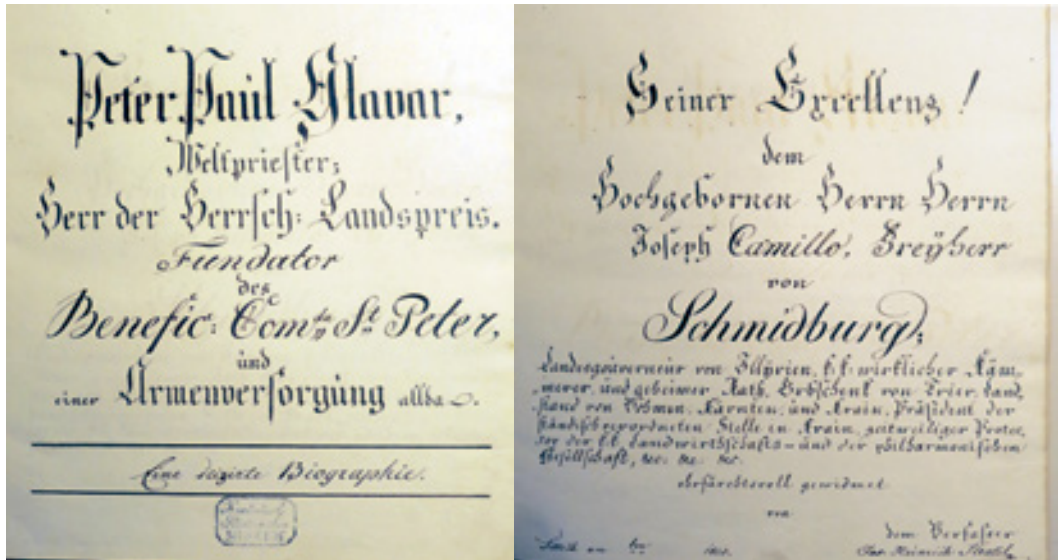 Peter Paul Glavar,
Weltpriester;
Herr der Herrsch: Landspreis.
Fundator
des
Benefic: Com. St. Peter,
und
einer Armenversorgung allda.
Eine skizirte Biographie.
Seiner Excellenz!
dem
Hochgebornen Herrn Herrn
Joseph Camillo, Freÿherr
von
Schmidburg;
Landesgouverneur von Illÿrien, k. k. wirklicher Käm-
merer, und geheimer Rath, Erbschenk von Trier, Land-
stand von Böhmen, Kärnten, und Krain, Präsident der
ständisch verordneten Stelle in Krain, zeitweiliger Protec-
tor der k. k. Landwirthschafts- und der philharmonischen
Gesellschaft, etc. etc. etc.
ehrfurchtsvoll gewidmet
von
dem Verfasser